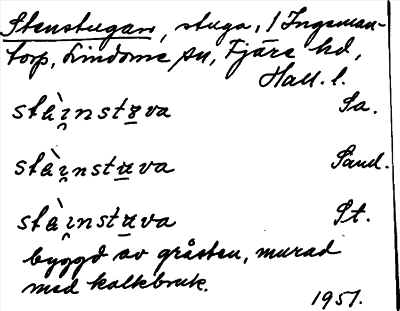 Stenstugan, stuga, i Ingeman-
torp, Lindome sn, Fjäre hd,
Hall. l.
stài̯nstu̲va Sa.
stài̯nstu̲va Sand.
stài̯nstu̲va St.
byggd av gråsten, murad
med kalkbruk.
1951.